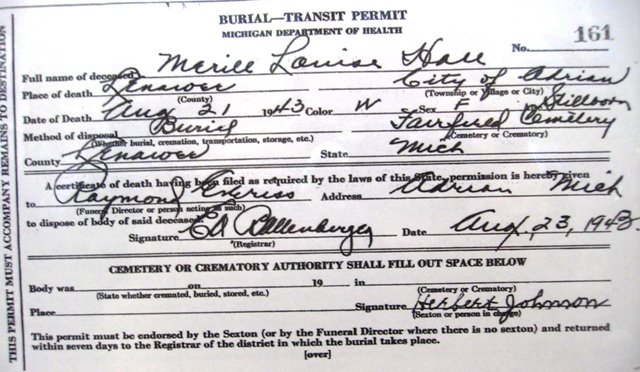 BURIAL—TRANSIT PERMIT
MICHIGAN DEPARTMENT OF HEALTH
No. 161
Full name of deceased Merill Louise Hall
Place of death Lenawee City of Adrian
(County) (Township or Village or City)
Date of Death Aug 21 1943 Color W Sex F Stillborn
Method of disposal Burial Fairfield Cemetery
(Whether burial, cremation, transportation, storage, etc.) (Cemetery or Crematory)
County Lenawee State Mich
A certificate of death having been filed as required by the laws of this State, permission is hereby given
to Raymond Address Adrian Mich
(Funeral Director or person acting as such)
to dispose of body of said deceased.
Signature Date Aug. 23, 1943.
(Registrar)
CEMETERY OR CREMATORY AUTHORITY SHALL FILL OUT SPACE BELOW
Body was on 19 in
(State whether cremated, buried, stored, etc.) (Cemetery or Crematory)
Place Signature Herbert Johnson
(Sexton or person in charge)
This permit must be endorsed by the Sexton (or by the Funeral Director where there is no sexton) and returned
within seven days to the Registrar of the district in which the burial takes place.
[over]
THIS PERMIT MUST ACCOMPANY REMAINS TO DESTINATION